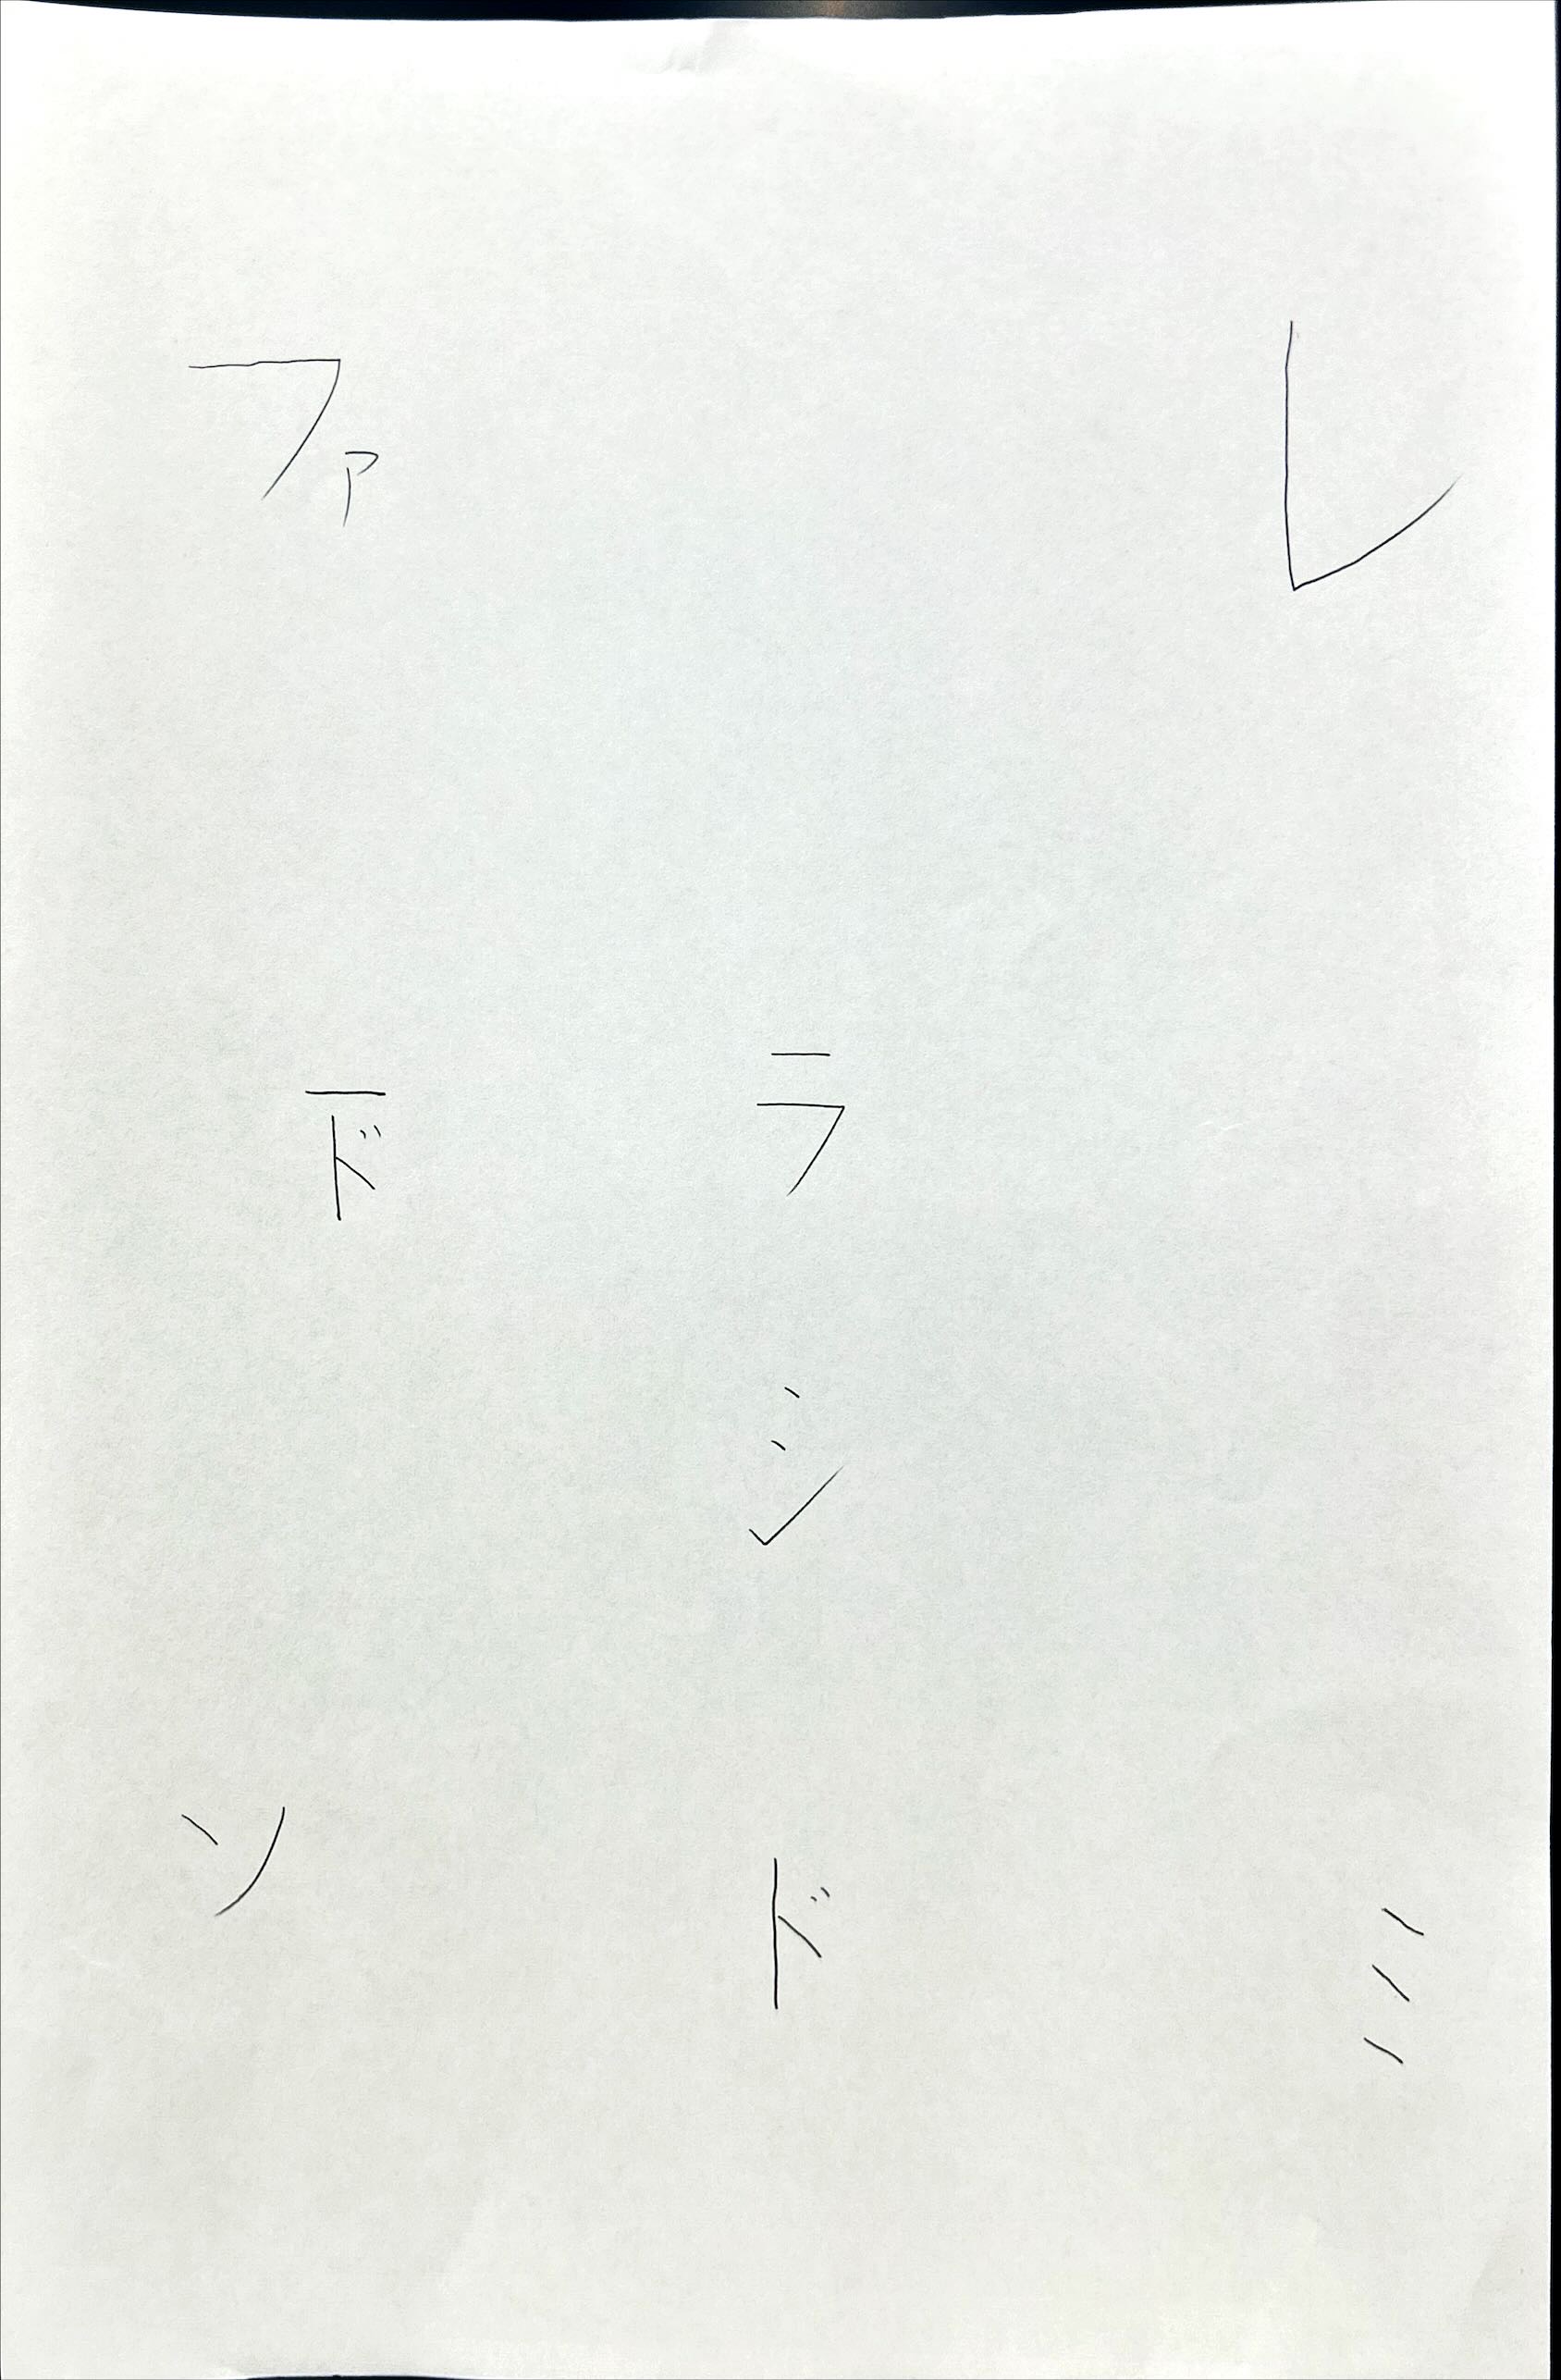 ファ レ
ド ラ
シ
ソ ド ミ